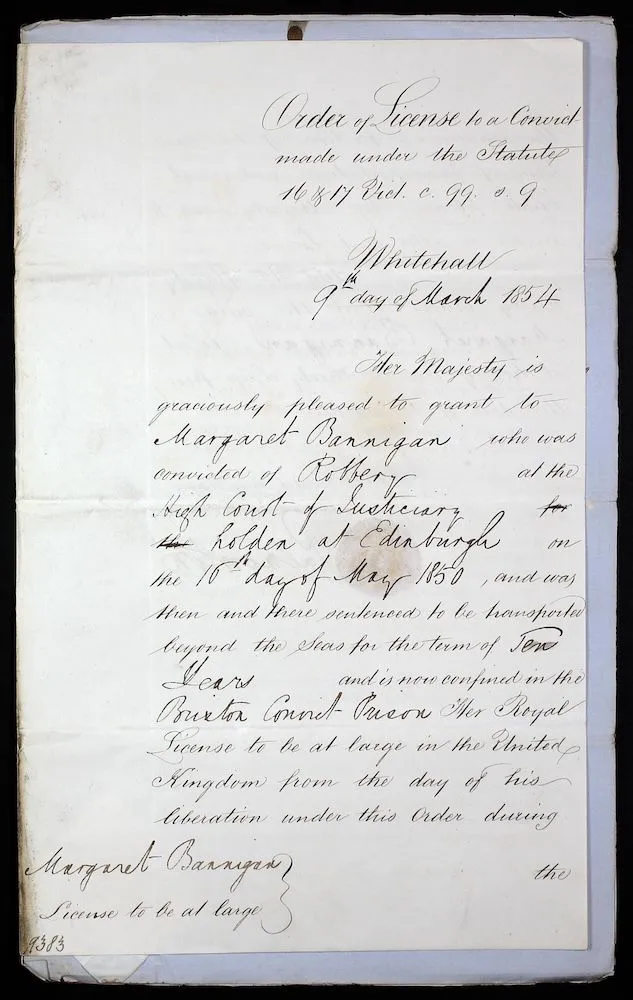 Order of License to a Convict
made under the Statute
16 & 17 Vict. c. 99. s. 9
Whitehall
9th day of March 1854
Her Majesty is
graciously pleased to grant to
Margaret Bannigan who was
convicted of Robbery at the
High Court of Justiciary for
the holden at Edinburgh on
the 16th day of May 1850, and was
then and there sentenced to be transported
beyond the Seas for the term of Ten
Years and is now confined in the
Brixton Convict Prison Her Royal
License to be at large in the United
Kingdom from the day of his
liberation under this Order during
Margaret Bannigan
the
License to be at large
9383